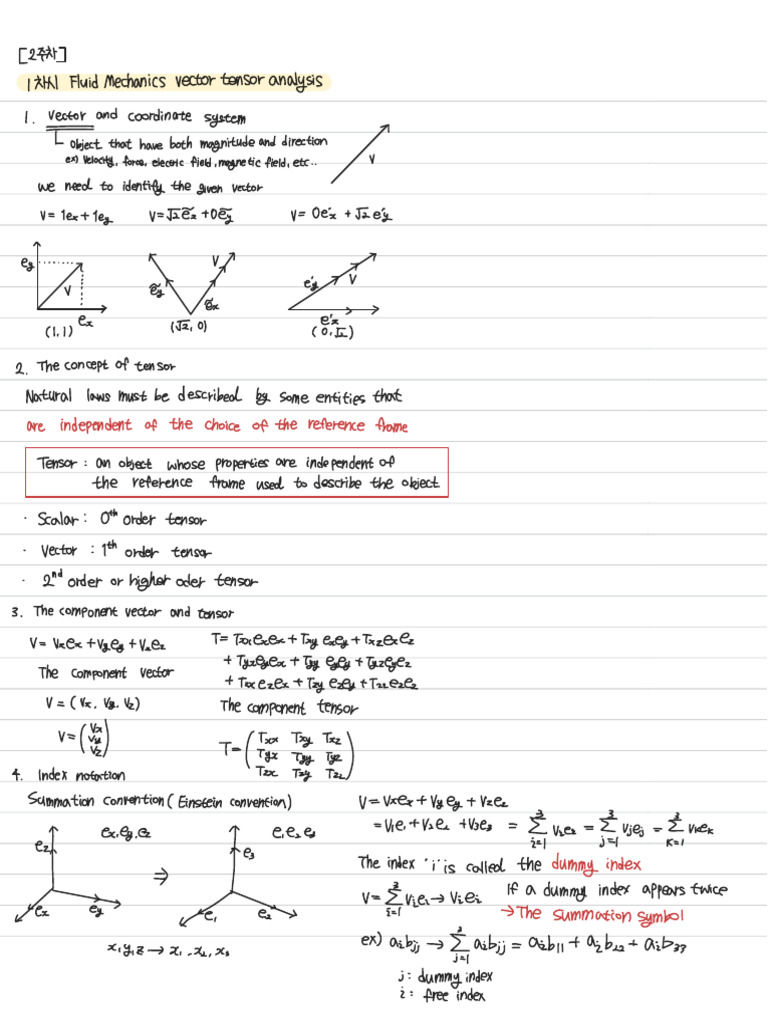 [2주차]
1차시 Fluid Mechanics vector tensor analysis
1. vector and coordinate system
object that have both magnitude and direction
ex) velocity, force, electric field, magnetic field, etc..
V
we need to identify the given vector
V = 1ex + 1ey V = √2 ẽx + 0ẽy V = 0e'x + √2 e'y
ey V ex (1,1)
ẽy V ẽx (√2, 0)
e'y V e'x (0, √2)
2. The concept of tensor
Natural laws must be described by some entities that
are independent of the choice of the reference frame
Tensor : an object whose properties are independent of
the reference frame used to describe the object
· Scalar : 0th order tensor
· vector : 1th order tensor
· 2nd order or higher oder tensor
3. The component vector and tensor
V = Vxex + Vyey + Vzez
The component vector
V = (Vx, Vy, Vz)
V = (Vx Vy Vz)
T = Txxexex + Txy exey + Txzexez
+ Tyxeyex + Tyy eyey + Tyzeyez
+ Tzxezex + Tzy ezey + Tzzezez
The component tensor
T = (Txx Txy Txz
Tyx Tyy Tyz
Tzx Tzy Tzz)
4. Index notation
Summation convention (Einstein convention)
ex, ey, ez e1 e2 e3
ez ⇒ e3
ex ey e1 e2
x, y, z → x1, x2, x3
V = Vxex + Vyey + Vzez
= V1e1 + V2e2 + V3e3 = 3∑i=1 Viei = 3∑j=1 Vjej = 3∑k=1 Vkek
The index 'i' is called the dummy index
V = 3∑i=1 Viei → Viei If a dummy index appears twice
→ The summation symbol
ex) aibjj → 3∑j=1 aibjj = aib11 + aib22 + aib33
j : dummy index
i : free index